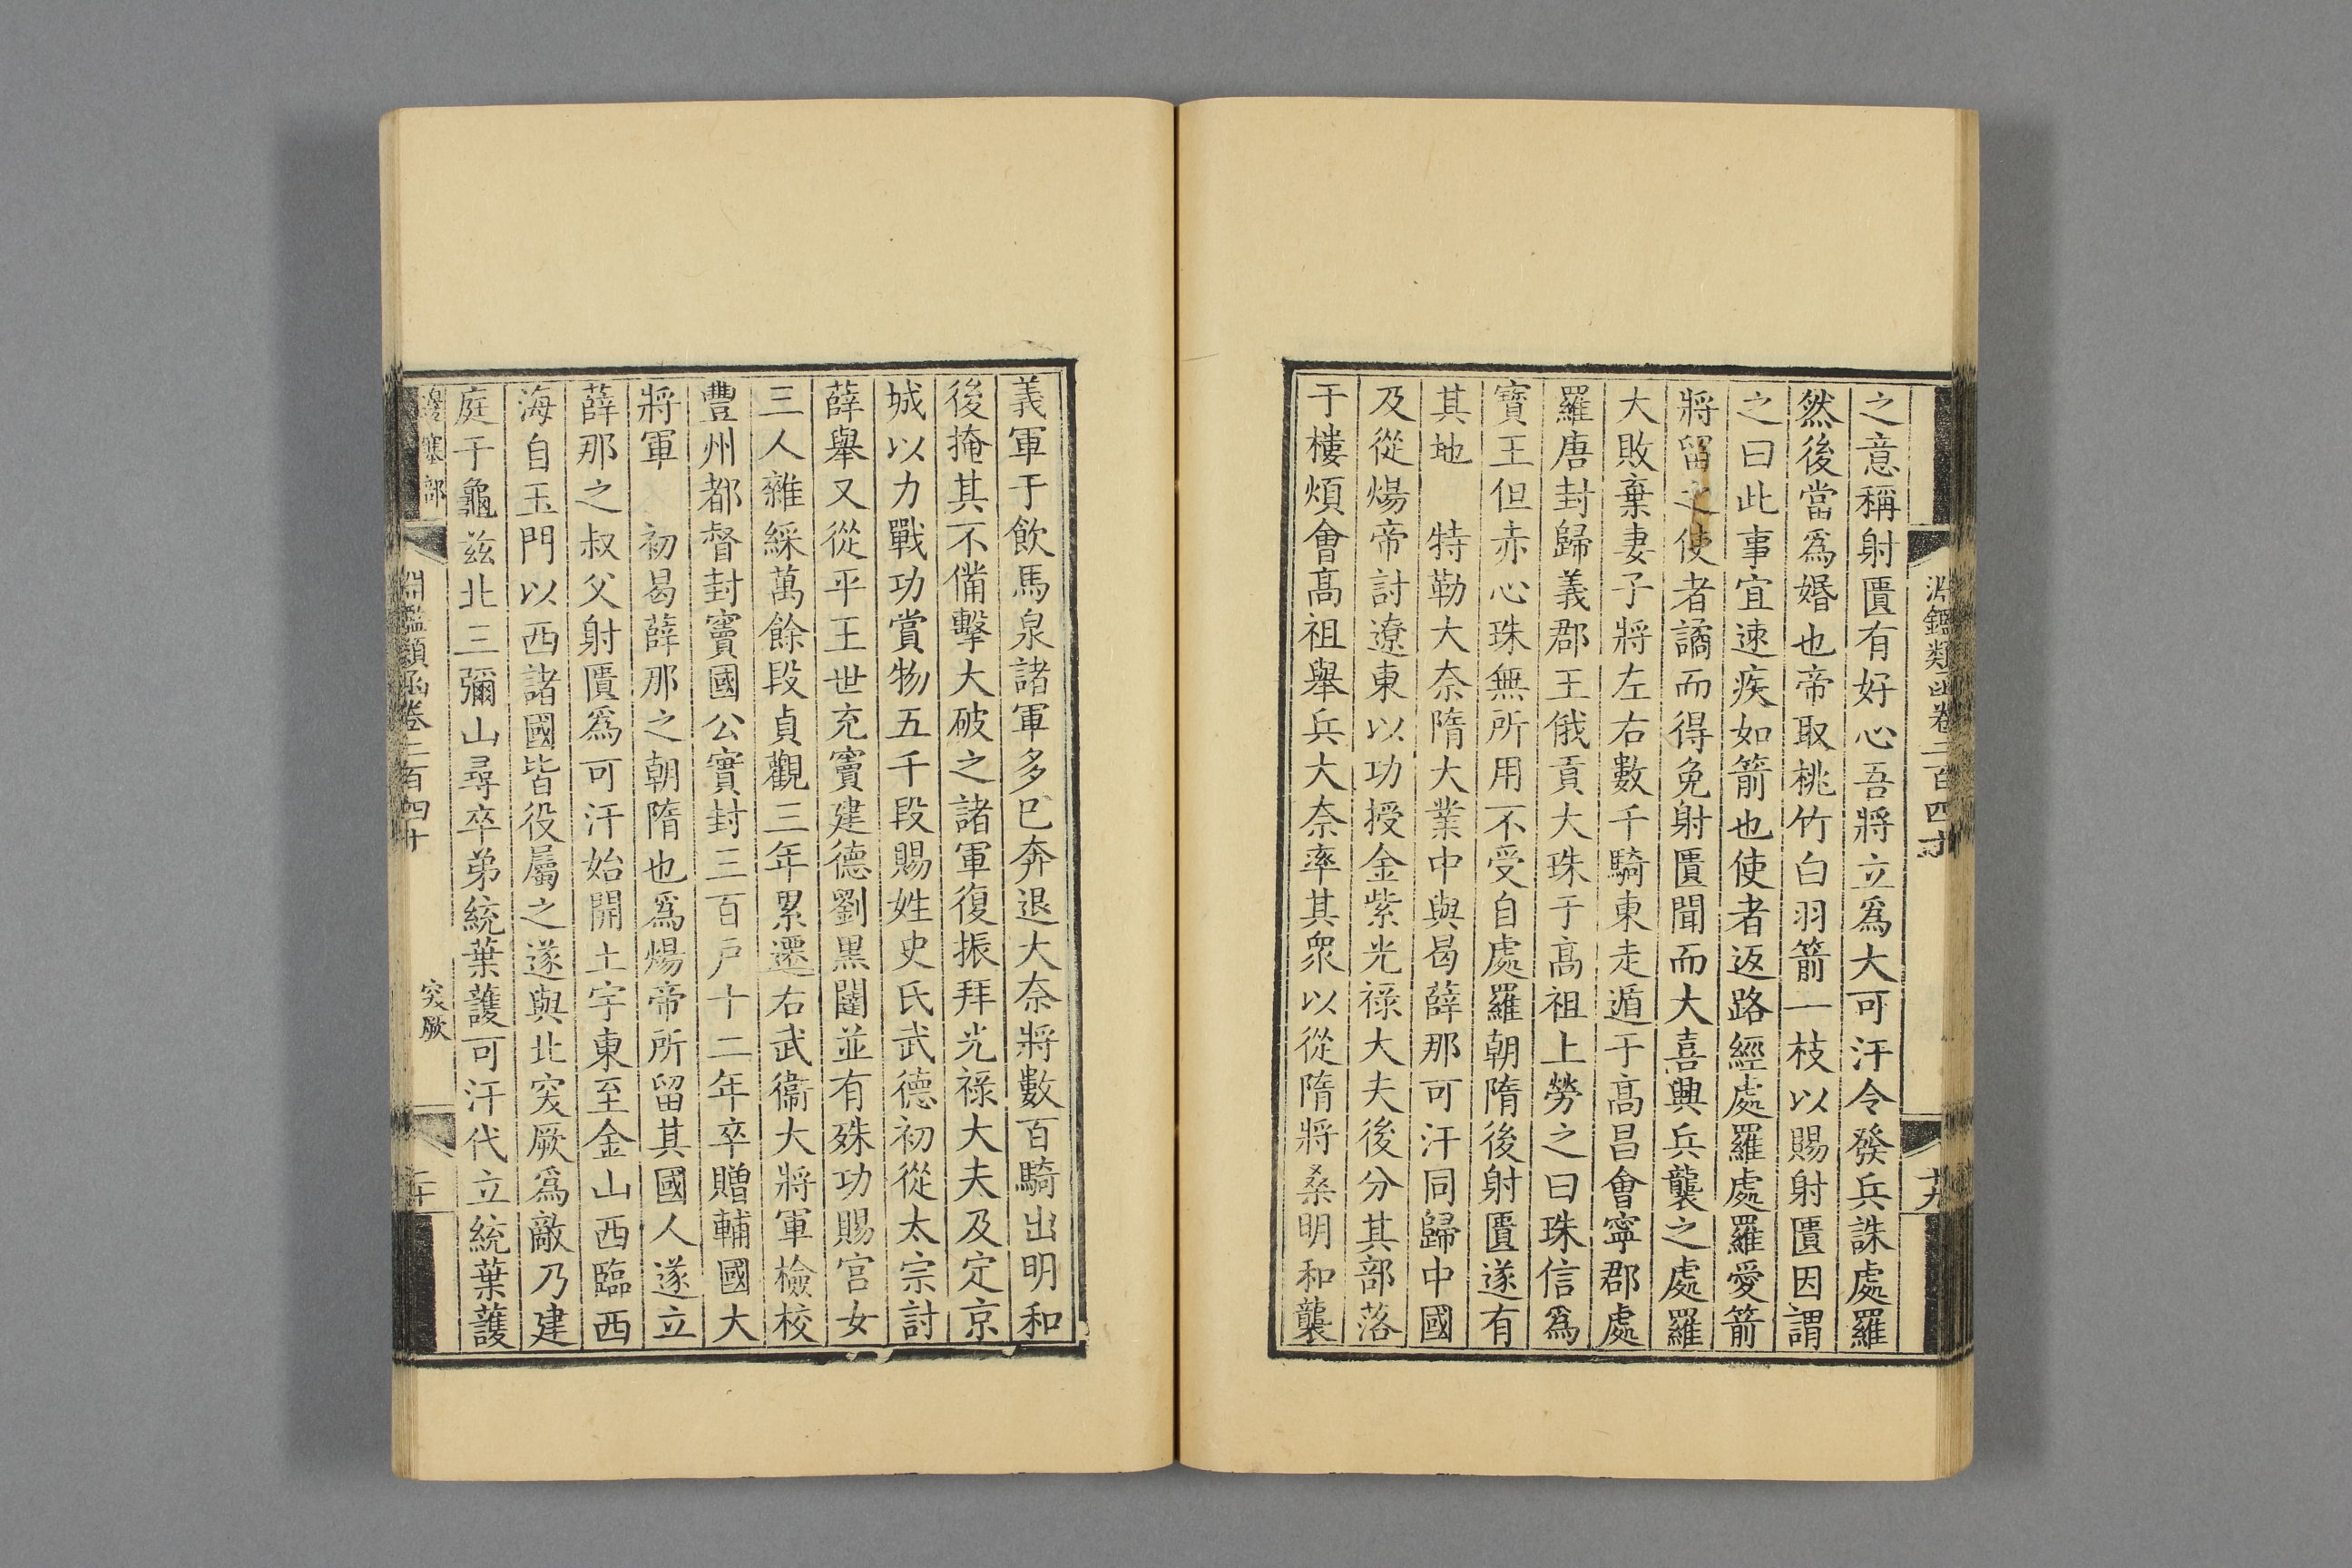 淵鑑類函卷二百四十
十九
之意稱射匱有好心吾將立爲大可汗令發兵誅處羅
然後當爲婚也帝取桃竹白羽箭一枝以賜射匱因謂
之曰此事宜速疾如箭也使者返路經處羅處羅愛箭
將留之使者譎而得免射匱聞而大喜興兵襲之處羅
大敗棄妻子將左右數千騎東走遁于高昌會寧郡處
羅唐封歸義郡王俄貢大珠于高祖上勞之曰珠信爲
寶王但赤心珠無所用不受自處羅朝隋後射匱遂有
其地　特勒大奈隋大業中與曷薩那可汗同歸中國
及從煬帝討遼東以功授金紫光祿大夫後分其部落
于樓煩會高祖舉兵大奈率其衆以從隋將桑明和襲
義軍于飲馬泉諸軍多已奔退大奈將數百騎出明和
後掩其不備擊大破之諸軍復振拜光祿大夫及定京
城以力戰功賞物五千段賜姓史氏武德初從太宗討
薛舉又從平王世充竇建德劉黑闥並有殊功賜宮女
三人雜綵萬餘段貞觀三年累遷右武衞大將軍檢校
豐州都督封竇國公實封三百戶十二年卒贈輔國大
將軍　初曷薛那之朝隋也爲煬帝所留其國人遂立
薛那之叔父射匱爲可汗始開土宇東至金山西臨西
海自玉門以西諸國皆役屬之遂與北突厥爲敵乃建
庭于龜兹北三彌山尋卒弟統葉護可汗代立統葉護
邊塞部
淵鑑類函卷二百四十
突厥
二十